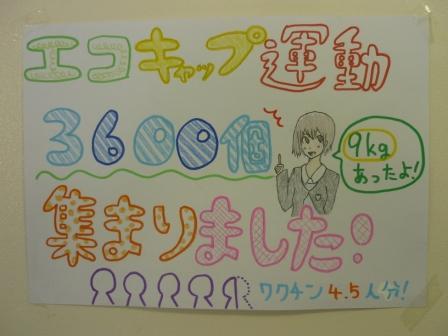 エコキャップ運動
3600個
9kg
あったよ!
集まりました!
ワクチン4.5人分!